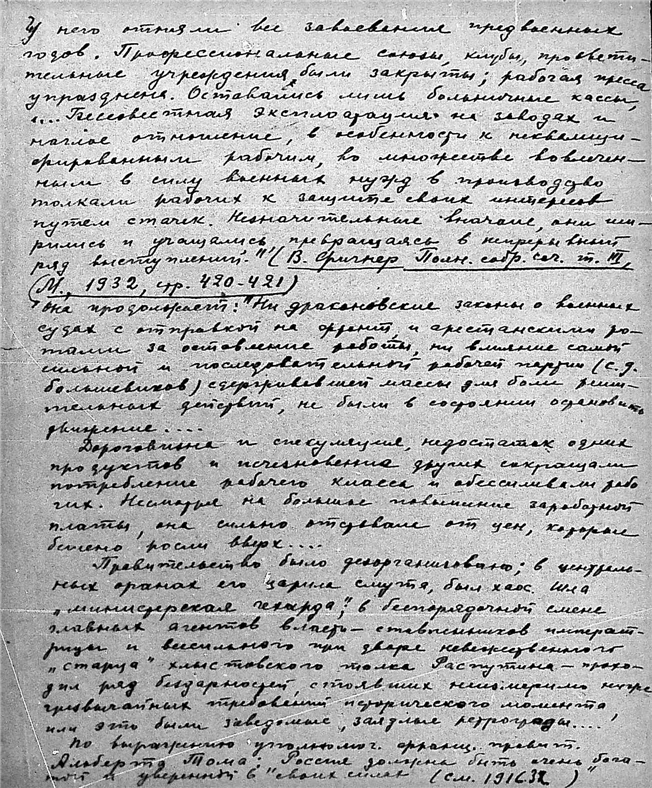 У него отняли все завоевания предвоенных
годов. Профессиональные союзы, клубы, просвети-
тельные учреждения были закрыты; рабочая пресса
упразднена. Оставались лишь больничные кассы,
"... Бессовестная эксплоатация на заводах и
наглое отношение, в особенности к неквалифи-
цированным рабочим, во множестве вовлечен-
ным в силу военных нужд в производство
толкали рабочих к защите своих интересов
путем стачек. Незначительные вначале, они ши-
рились и учащались, превращаясь в непрерывный
ряд выступлений." (В. Фигнер Полн. собр. соч. т. III,
М., 1932, стр. 420-421)
Она продолжает: "Ни драконовские законы о военных
судах с отправкой на фронт и арестанскими ро-
тами за оставление работы, ни влияние самой
сильной и последовательной рабочей партии (с.д.
большевиков) сдерживавшей массы для более реши-
тельных действий, не были в состоянии остановить
движение....
Дороговизна и спекуляция, недостаток одних
продуктов и исчезновение других сокращали
потребление рабочего класса и обессиливали рабо
чих. Несмотря на большое повышение заработной
платы, она сильно отставала от цен, которые
бешено росли вверх....
Правительство было дезорганизовано; в централь-
ных органах его царила смута, был хаос. Шла
"министерская чехарда"; в беспорядочной смене
главных агентов власти - ставленников императ-
рицы и всесильного при дворе невежественного
"старца" хлыстовского толка Распутина - прохо-
дил ряд бездарностей, стоявших неизмеримо ниже
чрезвычайных требований исторического момента,
или это были заведомые, заядлые ретрограды....
по выражению франц. правит.
Альберта Тома: Россия должна быть очень "бога-
той и уверенной в "своих силах (см. 1916 )"